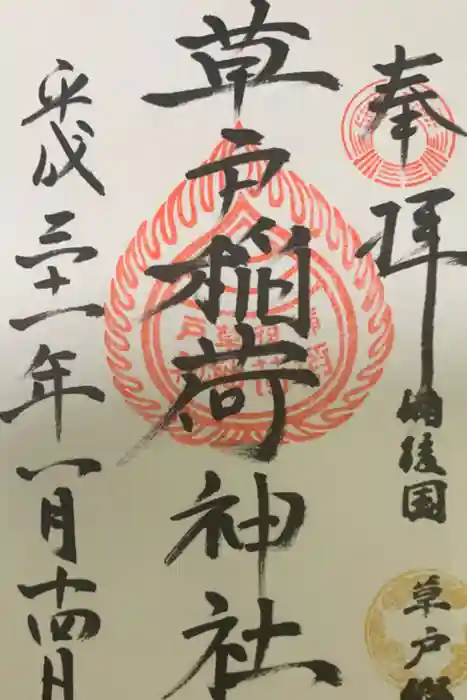 奉拝
備後国
草戸鎮
草戸稲荷神社
平成三十一年一月十四日